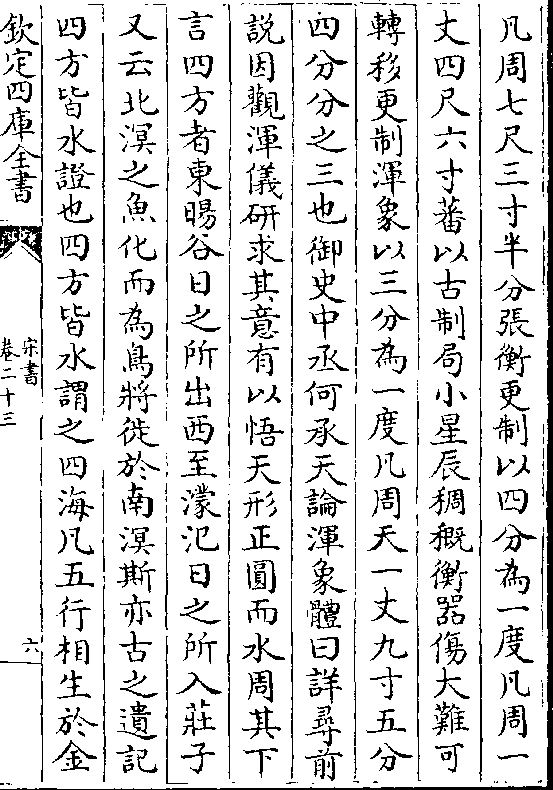 凡周七尺三寸半分張衡更制以四分為一度凡周一
丈四尺六寸蕃以古制局小星辰稠穊衡器傷大難可
轉移更制渾象以三分為一度凡周天一丈九寸五分
四分分之三也御史中丞何承天論渾象體曰詳尋前
説因觀渾儀研求其意有以悟天形正圓而水周其下
言四方者東暘谷日之所出西至濛汜日之所入莊子
又云北溟之魚化而為鳥將徙於南溟斯亦古之遺記
四方皆水證也四方皆水謂之四海凡五行相生於金
欽定四庫全書
宋書
卷二十三
六